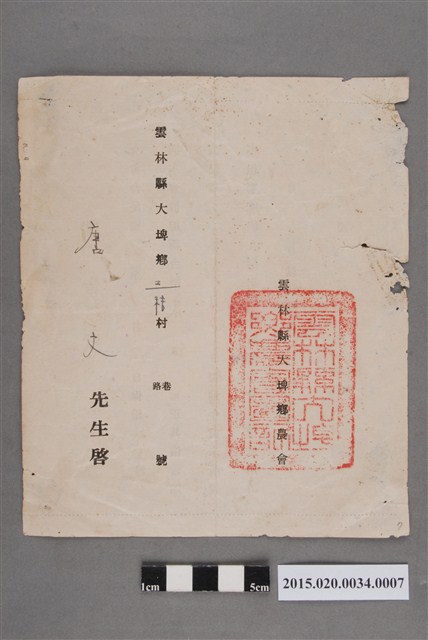 雲林縣大埤鄉農會
雲林縣大埤鄉 村 巷路 號
唐 文 先生啓
1cm 5cm
2015.020.0034.0007